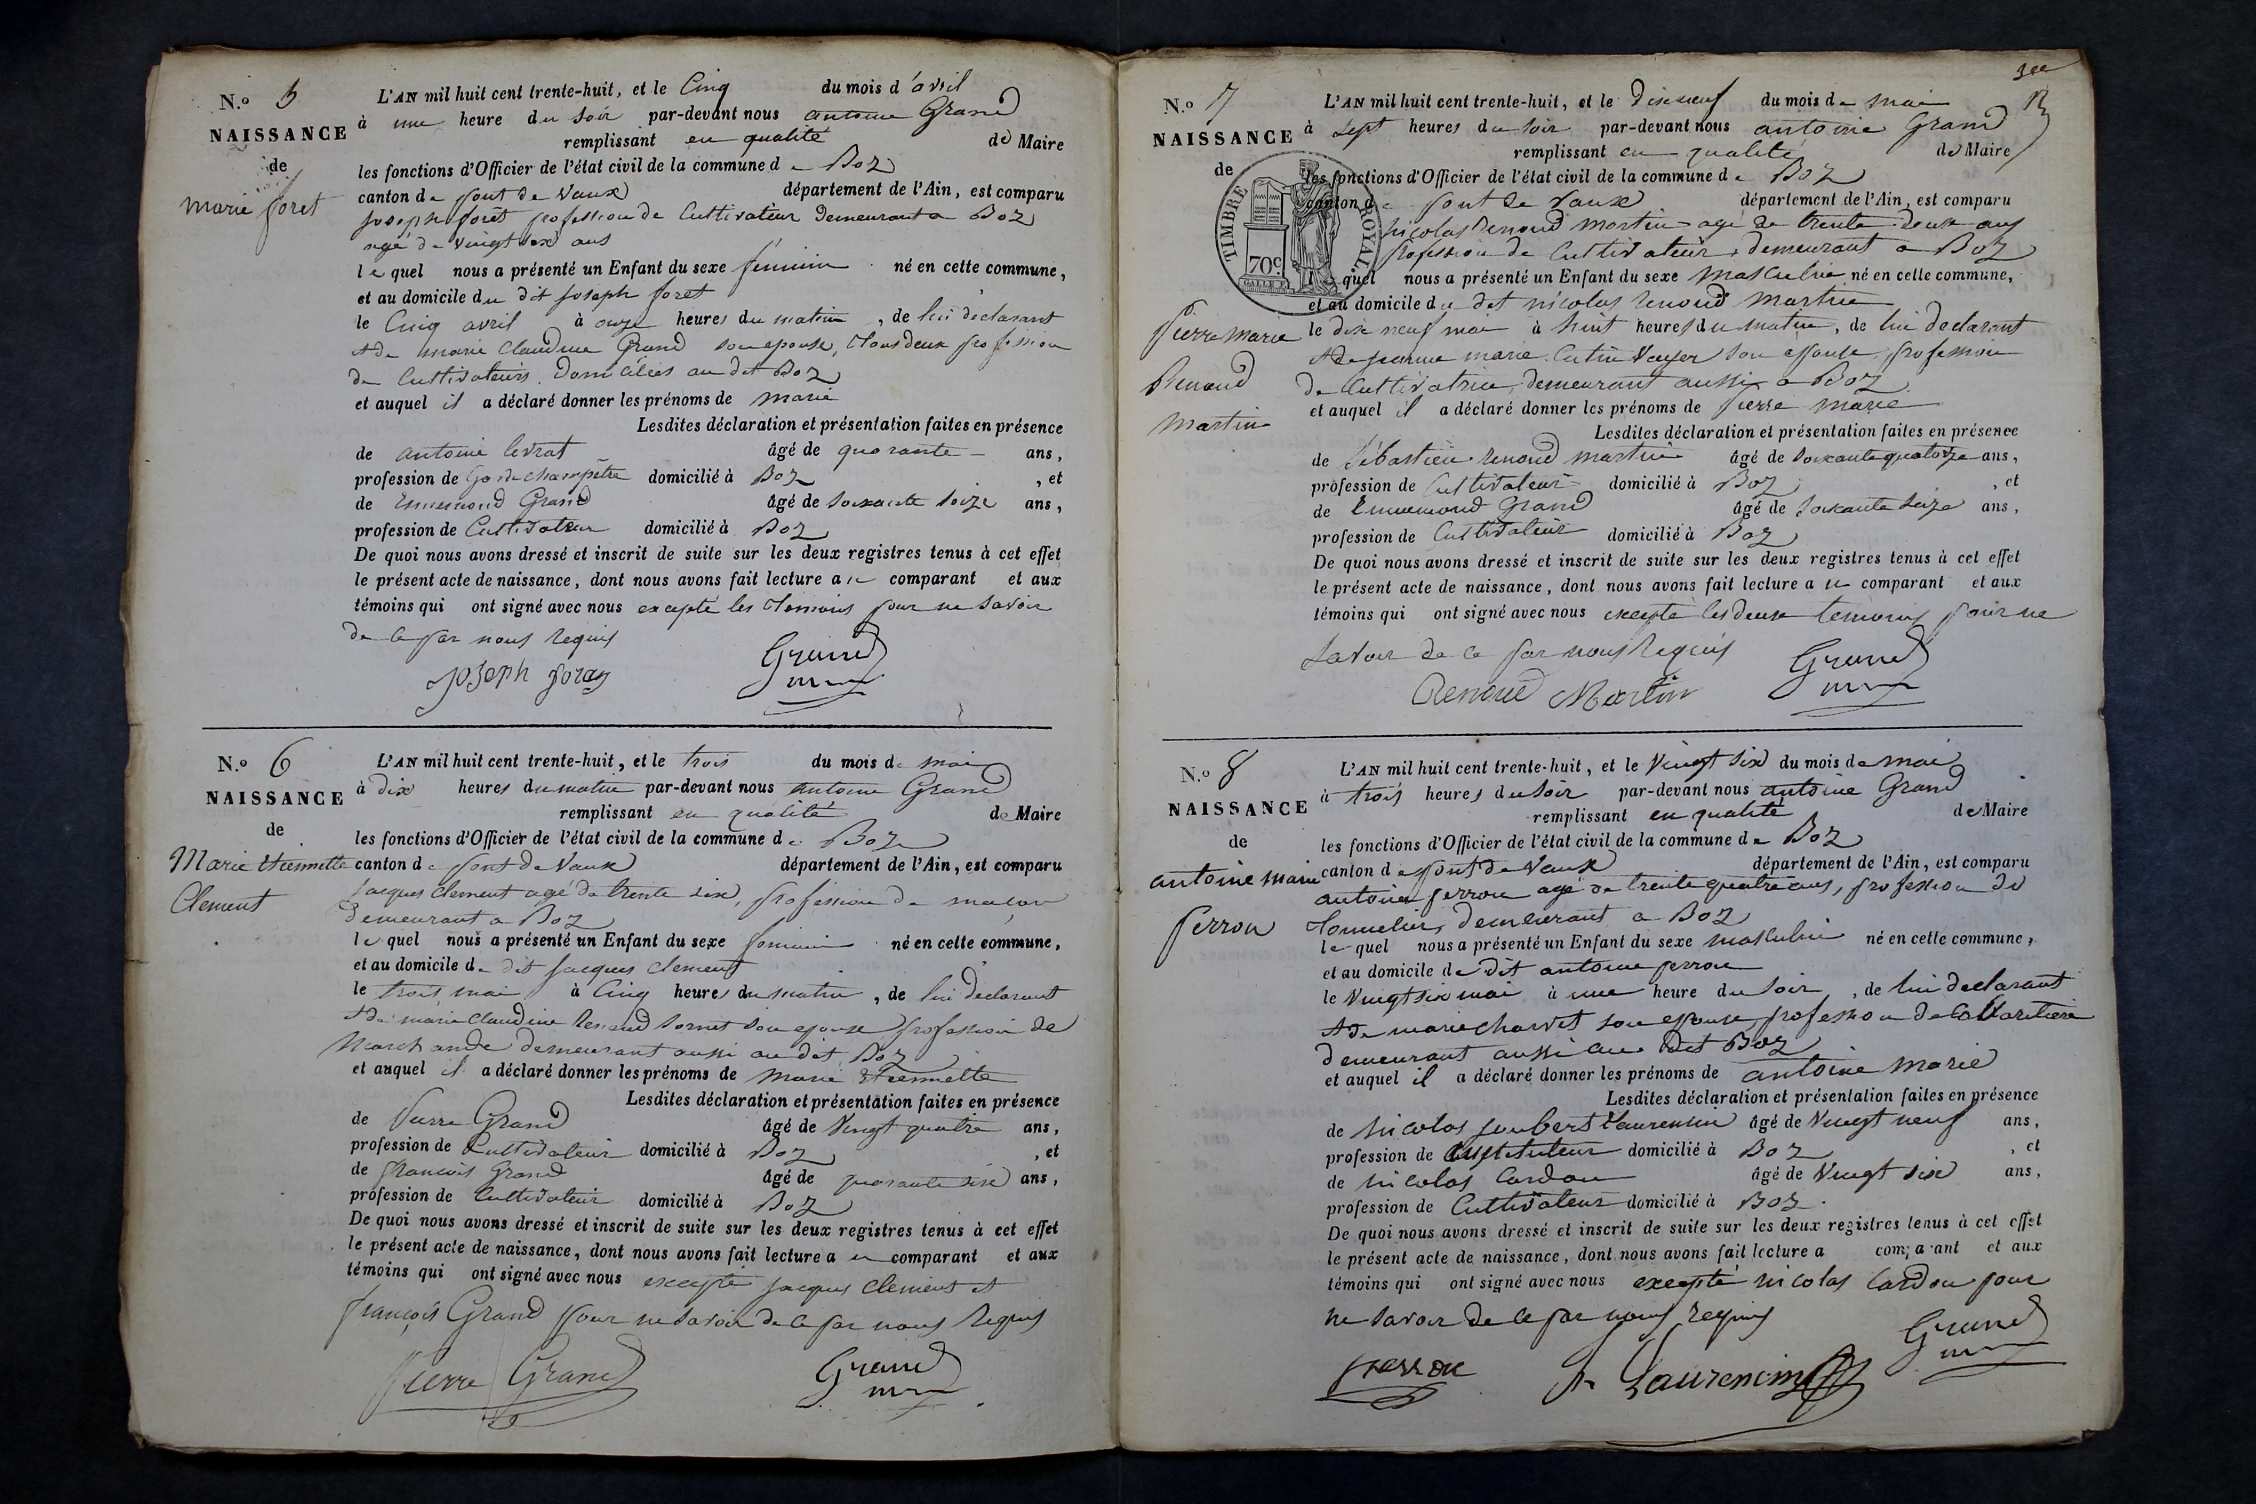 N.o 5
NAISSANCE
de
marie foret
L'AN mil huit cent trente-huit, et le Cinq du mois d'avril
à une heure du soir par-devant nous antoine Grand
remplissant en qualité de Maire
les fonctions d'Officier de l'état civil de la commune de Boz
canton de pont de Vaux département de l'Ain, est comparu
joseph forêt profession de Cultivateur demeurant a Boz
agé de vingt six ans
lequel nous a présenté un Enfant du sexe féminin né en cette commune,
et au domicile du dit joseph foret
le Cinq avril à onze heures du matin, de lui déclarant
et de marie Claudine Grand son epouse, tous deux profession
de Cultivateurs Domiciliés au dit Boz
et auquel il a déclaré donner les prénoms de marie
Lesdites déclaration et présentation faites en présence
de antoine levrat âgé de quarante ans,
profession de Garde champêtre domicilié à Boz, et
de Ennemond Grand âgé de soixante seize ans,
profession de Cultivateur domicilié à Boz
De quoi nous avons dressé et inscrit de suite sur les deux registres tenus à cet effet
le présent acte de naissance, dont nous avons fait lecture au comparant et aux
témoins qui ont signé avec nous excepté les temoins pour ne savoir
de ce par nous requis
joseph foray Grand
N.o 6
NAISSANCE
de
Marie etiennette
Clement
L'AN mil huit cent trente-huit, et le trois du mois de mai
à dix heures du matin par-devant nous antoine Grand
remplissant en qualité de Maire
les fonctions d'Officier de l'état civil de la commune de Boz
canton de pont de Vaux département de l'Ain, est comparu
jacques Clement agé de trente six, profession de maçon
demeurant a Boz
lequel nous a présenté un Enfant du sexe feminin né en cette commune,
et au domicile de dit jacques Clement
le trois mai à Cinq heures du matin, de lui declarant
et de marie Claudine Renoud sornet son epouse profession de
Marchande demeurant aussi au dit Boz
et auquel il a déclaré donner les prénoms de marie etiennette
Lesdites déclaration et présentation faites en présence
de Pierre Grand âgé de Vingt quatre ans,
profession de Cultivateur domicilié à Boz, et
de françois Grand âgé de quarante six ans,
profession de Cultivateur domicilié à Boz
De quoi nous avons dressé et inscrit de suite sur les deux registres tenus à cet effet
le présent acte de naissance, dont nous avons fait lecture au comparant et aux
témoins qui ont signé avec nous excepté jacques Clement et
françois Grand pour ne savoir de ce par nous requis
Pierre Grand Grand
13
N.o 7
NAISSANCE
de
TIMBRE ROYAL
70c
pierre marie
Renoud
Martin
L'AN mil huit cent trente-huit, et le dix neuf du mois de mai
à sept heures du soir par-devant nous antoine Grand
remplissant en qualité de Maire
les fonctions d'Officier de l'état civil de la commune de Boz
canton de pont de Vaux département de l'Ain, est comparu
nicolas renoud martin agé de trente deux ans
profession de Cultivateur demeurant a Boz
lequel nous a présenté un Enfant du sexe masculin né en cette commune,
et au domicile du dit nicolas renoud martin
le dix neuf mai à huit heures du matin, de lui declarant
et de jeanne marie Catin Vayer son épouse, profession
de Cultivatrice, demeurant aussi a Boz
et auquel il a déclaré donner les prénoms de pierre marie
Lesdites déclaration et présentation faites en présence
de sébastien renoud martin âgé de soixante quatorze ans,
profession de Cultivateur domicilié à Boz, et
de Ennemond Grand âgé de soixante seize ans,
profession de Cultivateur domicilié à Boz
De quoi nous avons dressé et inscrit de suite sur les deux registres tenus à cet effet
le présent acte de naissance, dont nous avons fait lecture au comparant et aux
témoins qui ont signé avec nous excepté les deux temoins pour ne
savoir de ce par nous requis
Renoud Martin Grand
N.o 8
NAISSANCE
de
antoine marie
perron
L'AN mil huit cent trente-huit, et le Vingt six du mois de mai
à trois heures du soir par-devant nous antoine Grand
remplissant en qualité de Maire
les fonctions d'Officier de l'état civil de la commune de Boz
canton de pont de Vaux département de l'Ain, est comparu
antoine perron agé de trente quatre ans, profession de
tonnelier, demeurant a Boz
lequel nous a présenté un Enfant du sexe masculin né en cette commune,
et au domicile de dit antoine perron
le Vingt six mai à une heure du soir, de lui declarant
et de marie charvet son epouse, profession de Cabaretiere
demeurant aussi au dit Boz
et auquel il a déclaré donner les prénoms de antoine marie
Lesdites déclaration et présentation faites en présence
de nicolas joubert laurencin âgé de Vingt neuf ans,
profession de instituteur domicilié à Boz, et
de nicolas Cardon âgé de Vingt six ans,
profession de Cultivateur domicilié à Boz.
De quoi nous avons dressé et inscrit de suite sur les deux registres tenus à cet effet
le présent acte de naissance, dont nous avons fait lecture a comparant et aux
témoins qui ont signé avec nous excepté nicolas Cardon pour
ne savoir de ce par nous requis
perron Laurencin Grand